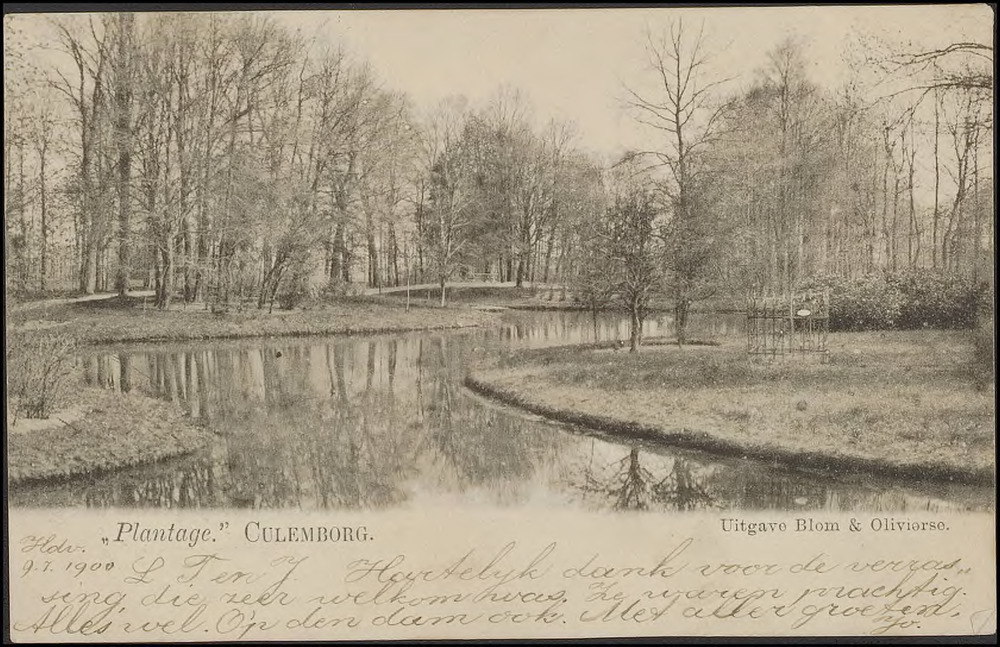 „Plantage.” CULEMBORG.
Uitgave Blom & Olivierse.
Hdv.
9.7.1900 L T en J. Hartelijk dank voor de verras„
sing, die zeer welkom was. Ze waren prachtig.
Alles wel. Op den dam ook. Met aller groeten,
Jo.